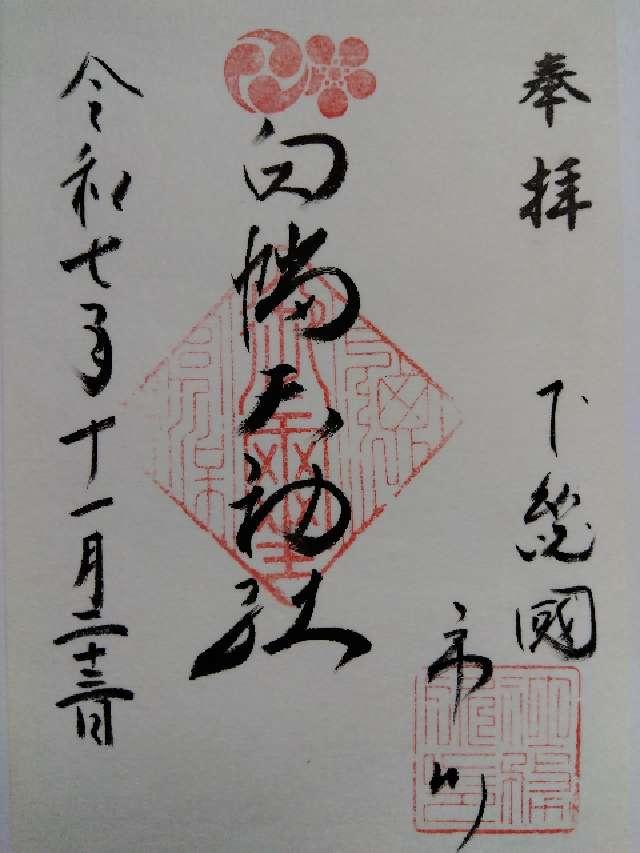 奉拝
下総國
市川
白幡天神社
令和七年十一月二十三日